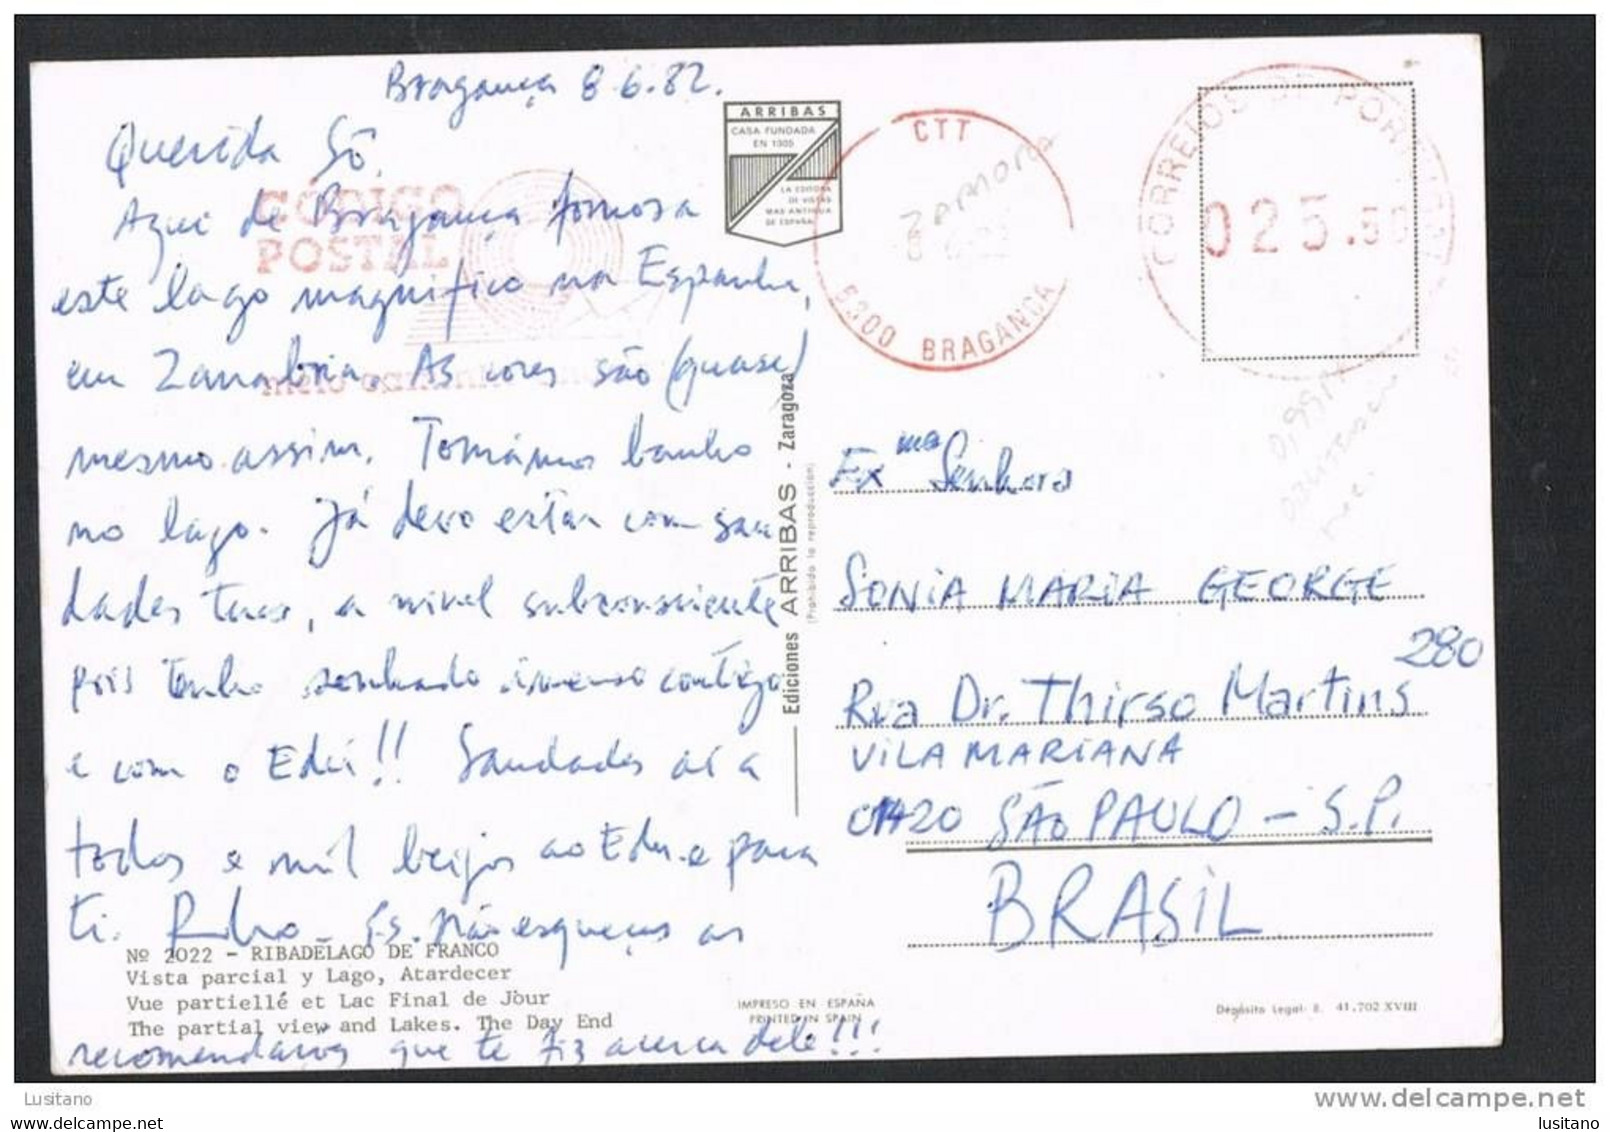 Bragança 8.6.82.
Querida Sô,
Aqui de Bragança fomos a
este lago magnífico na Espanha,
em Zanabria. As cores são (quase)
mesmo assim. Tomámos banho
no lago. Já devo estar com sau
dades tuas, a nível subconsciente
pois tenho sonhado imenso contigo
e com o Edú!! Saudades aí a
todos e mil beijos ao Edu e para
ti. Não esqueças as
recomendações que te fiz acerca dele!!!
CÓDIGO
POSTAL
meio caminho
ARRIBAS
CASA FUNDADA
EN 1905
LA EDITORA
DE VISTAS
MAS ANTIGUA
DE ESPAÑA
CTT
ZAMORA
5300 BRAGANÇA
CORREIOS DE PORTUGAL
025.50
Ediciones ARRIBAS - Zaragoza
(Prohibida la reproducción)
Ex.ma Senhora
SONIA MARIA GEORGE
280
Rua Dr. Thirso Martins
VILA MARIANA
SÃO PAULO - S.P.
BRASIL
Nº 2022 - RIBADELAGO DE FRANCO
Vista parcial y Lago, Atardecer
Vue partiellé et Lac Final de Jour
The partial view and Lakes. The Day End
IMPRESO EN ESPAÑA
PRINTED IN SPAIN
Depósito Legal: B. 41.702 XVIII
Lusitano
www.delcampe.net
lusitano